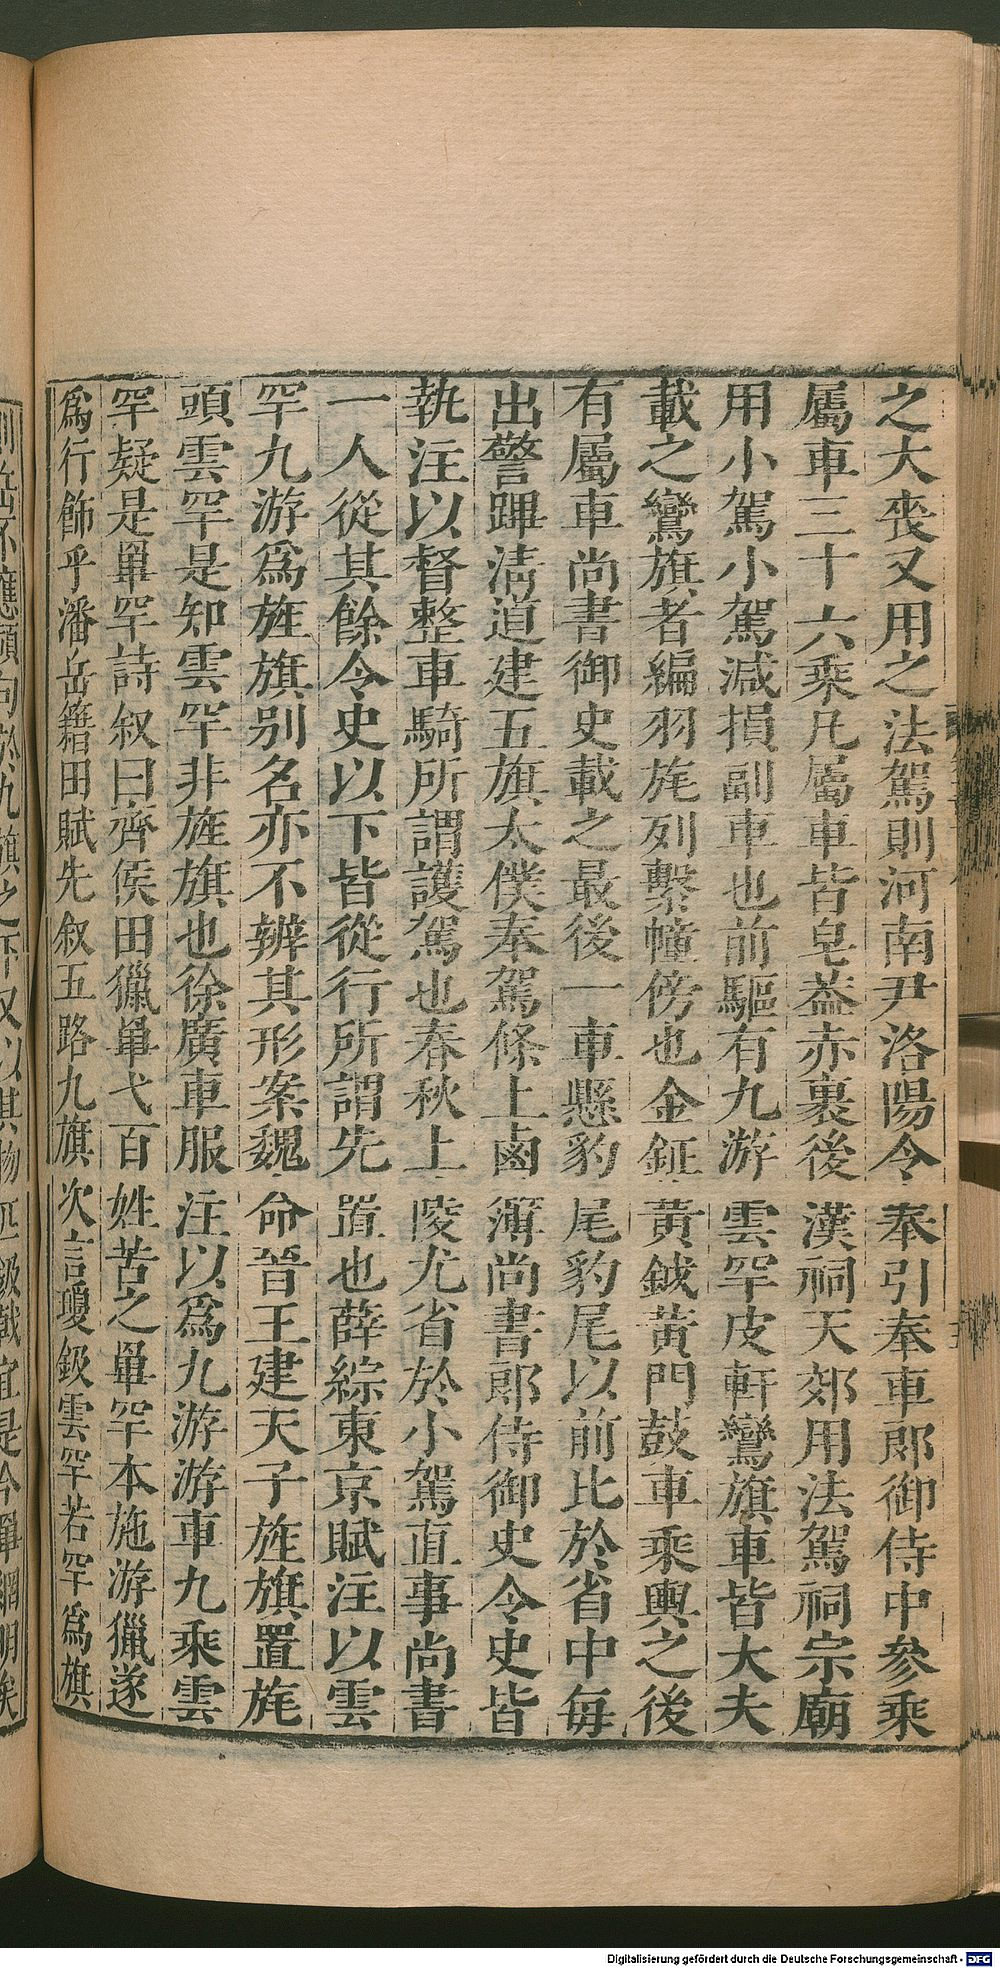 之大喪又用之法駕則河南尹洛陽令奉引奉車郎御侍中參乘
屬車三十六乘凡屬車皆皂葢赤裏後漢祠天郊用法駕祠宗廟
用小駕小駕減損副車也前驅有九游雲罕皮軒鸞旗車皆大夫
載之鸞旗者編羽旄列繫幢傍也金鉦黃鉞黃門鼓車乘輿之後
有屬車尚書御史載之最後一車懸豹尾豹尾以前比於省中每
出警蹕淸道建五旗太僕奉駕條上鹵簿尚書郎侍御史令史皆
執注以督整車騎所謂護駕也春秋上陵尤省於小駕直事尚書
一人從其餘令史以下皆從行所謂先置也薛綜東京賦注以雲
罕九游爲旌旗別名亦不辨其形案魏命晉王建天子旌旗置旄
頭雲罕是知雲罕非旌旗也徐廣車服注以爲九游游車九乘雲
罕疑是畢罕詩叙曰齊侯田獵畢弋百姓苦之畢罕本施游獵遂
爲行飾乎潘岳籍田賦先叙五路九旗次言瓊鈒雲罕若罕爲旗
則岳不應頻句於九旗之下又以其物匹鈒戟宜是今畢網明矣
Digitalisierung gefördert durch die Deutsche Forschungsgemeinschaft - DFG